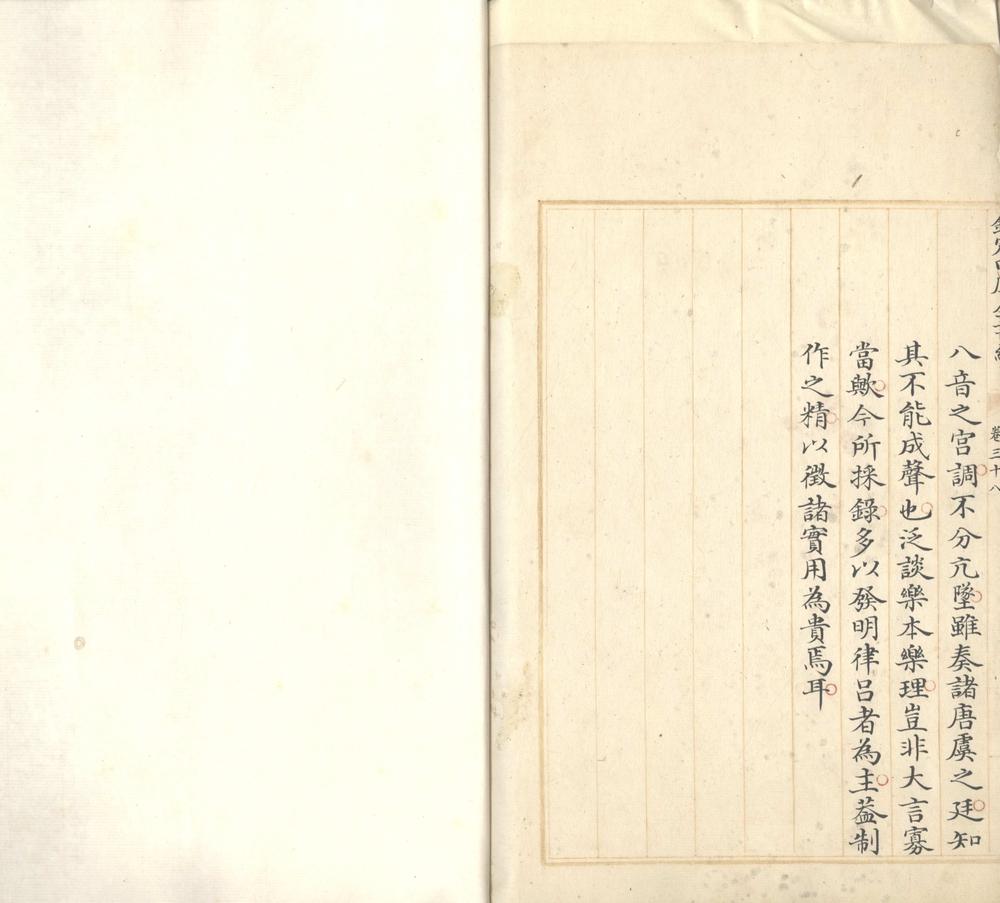 卷三十八
八音之宫調不分亢墜雖奏諸唐虞之廷知
其不能成聲也泛談樂本樂理豈非大言寡
當歟今所採錄多以發明律吕者為主葢制
作之精以徵諸實用為貴焉耳